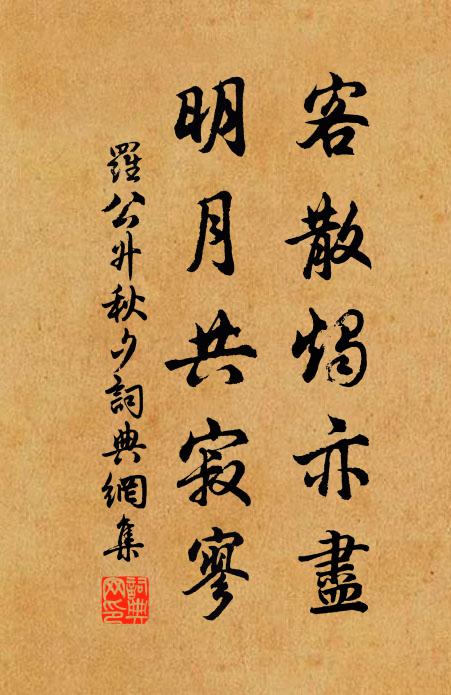 客散燭亦盡
明月共寂寥
羅公升秋夕詞典網集
詞典
網印